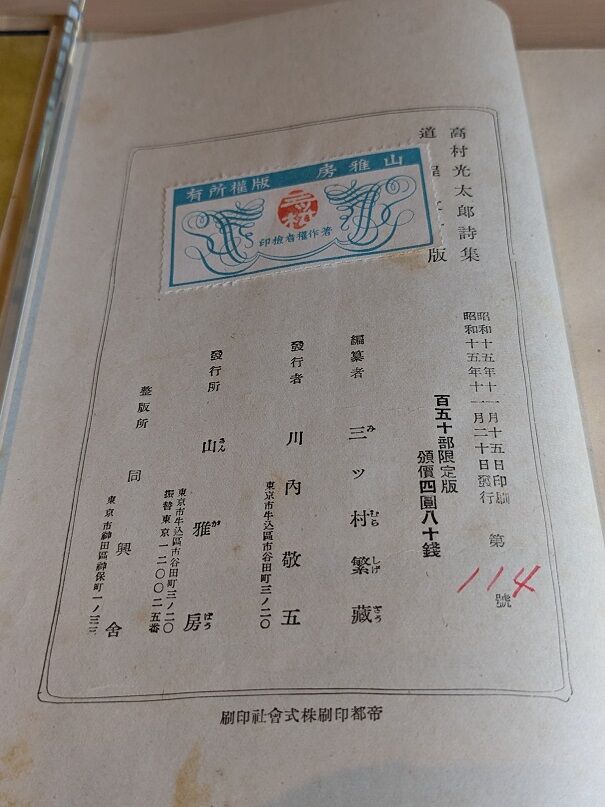 高村光太郎詩集
道程
版
山雅房 版權所有
三ツ村
著作權者檢印
昭和十五年十一月十五日印刷
昭和十五年十一月二十日發行
第 114 號
百五十部限定版
頒價四圓八十錢
編纂者 三ッ村繁藏
み むら しげ ざう
發行者 川內敬五
東京市牛込區市谷田町三ノ二〇
發行所 山雅房
さん が ばう
東京市牛込區市谷田町三ノ二〇
振替東京一二〇〇二五番
整版所 同興舍
東京市神田區神保町一ノ三三
帝都印刷株式會社印刷